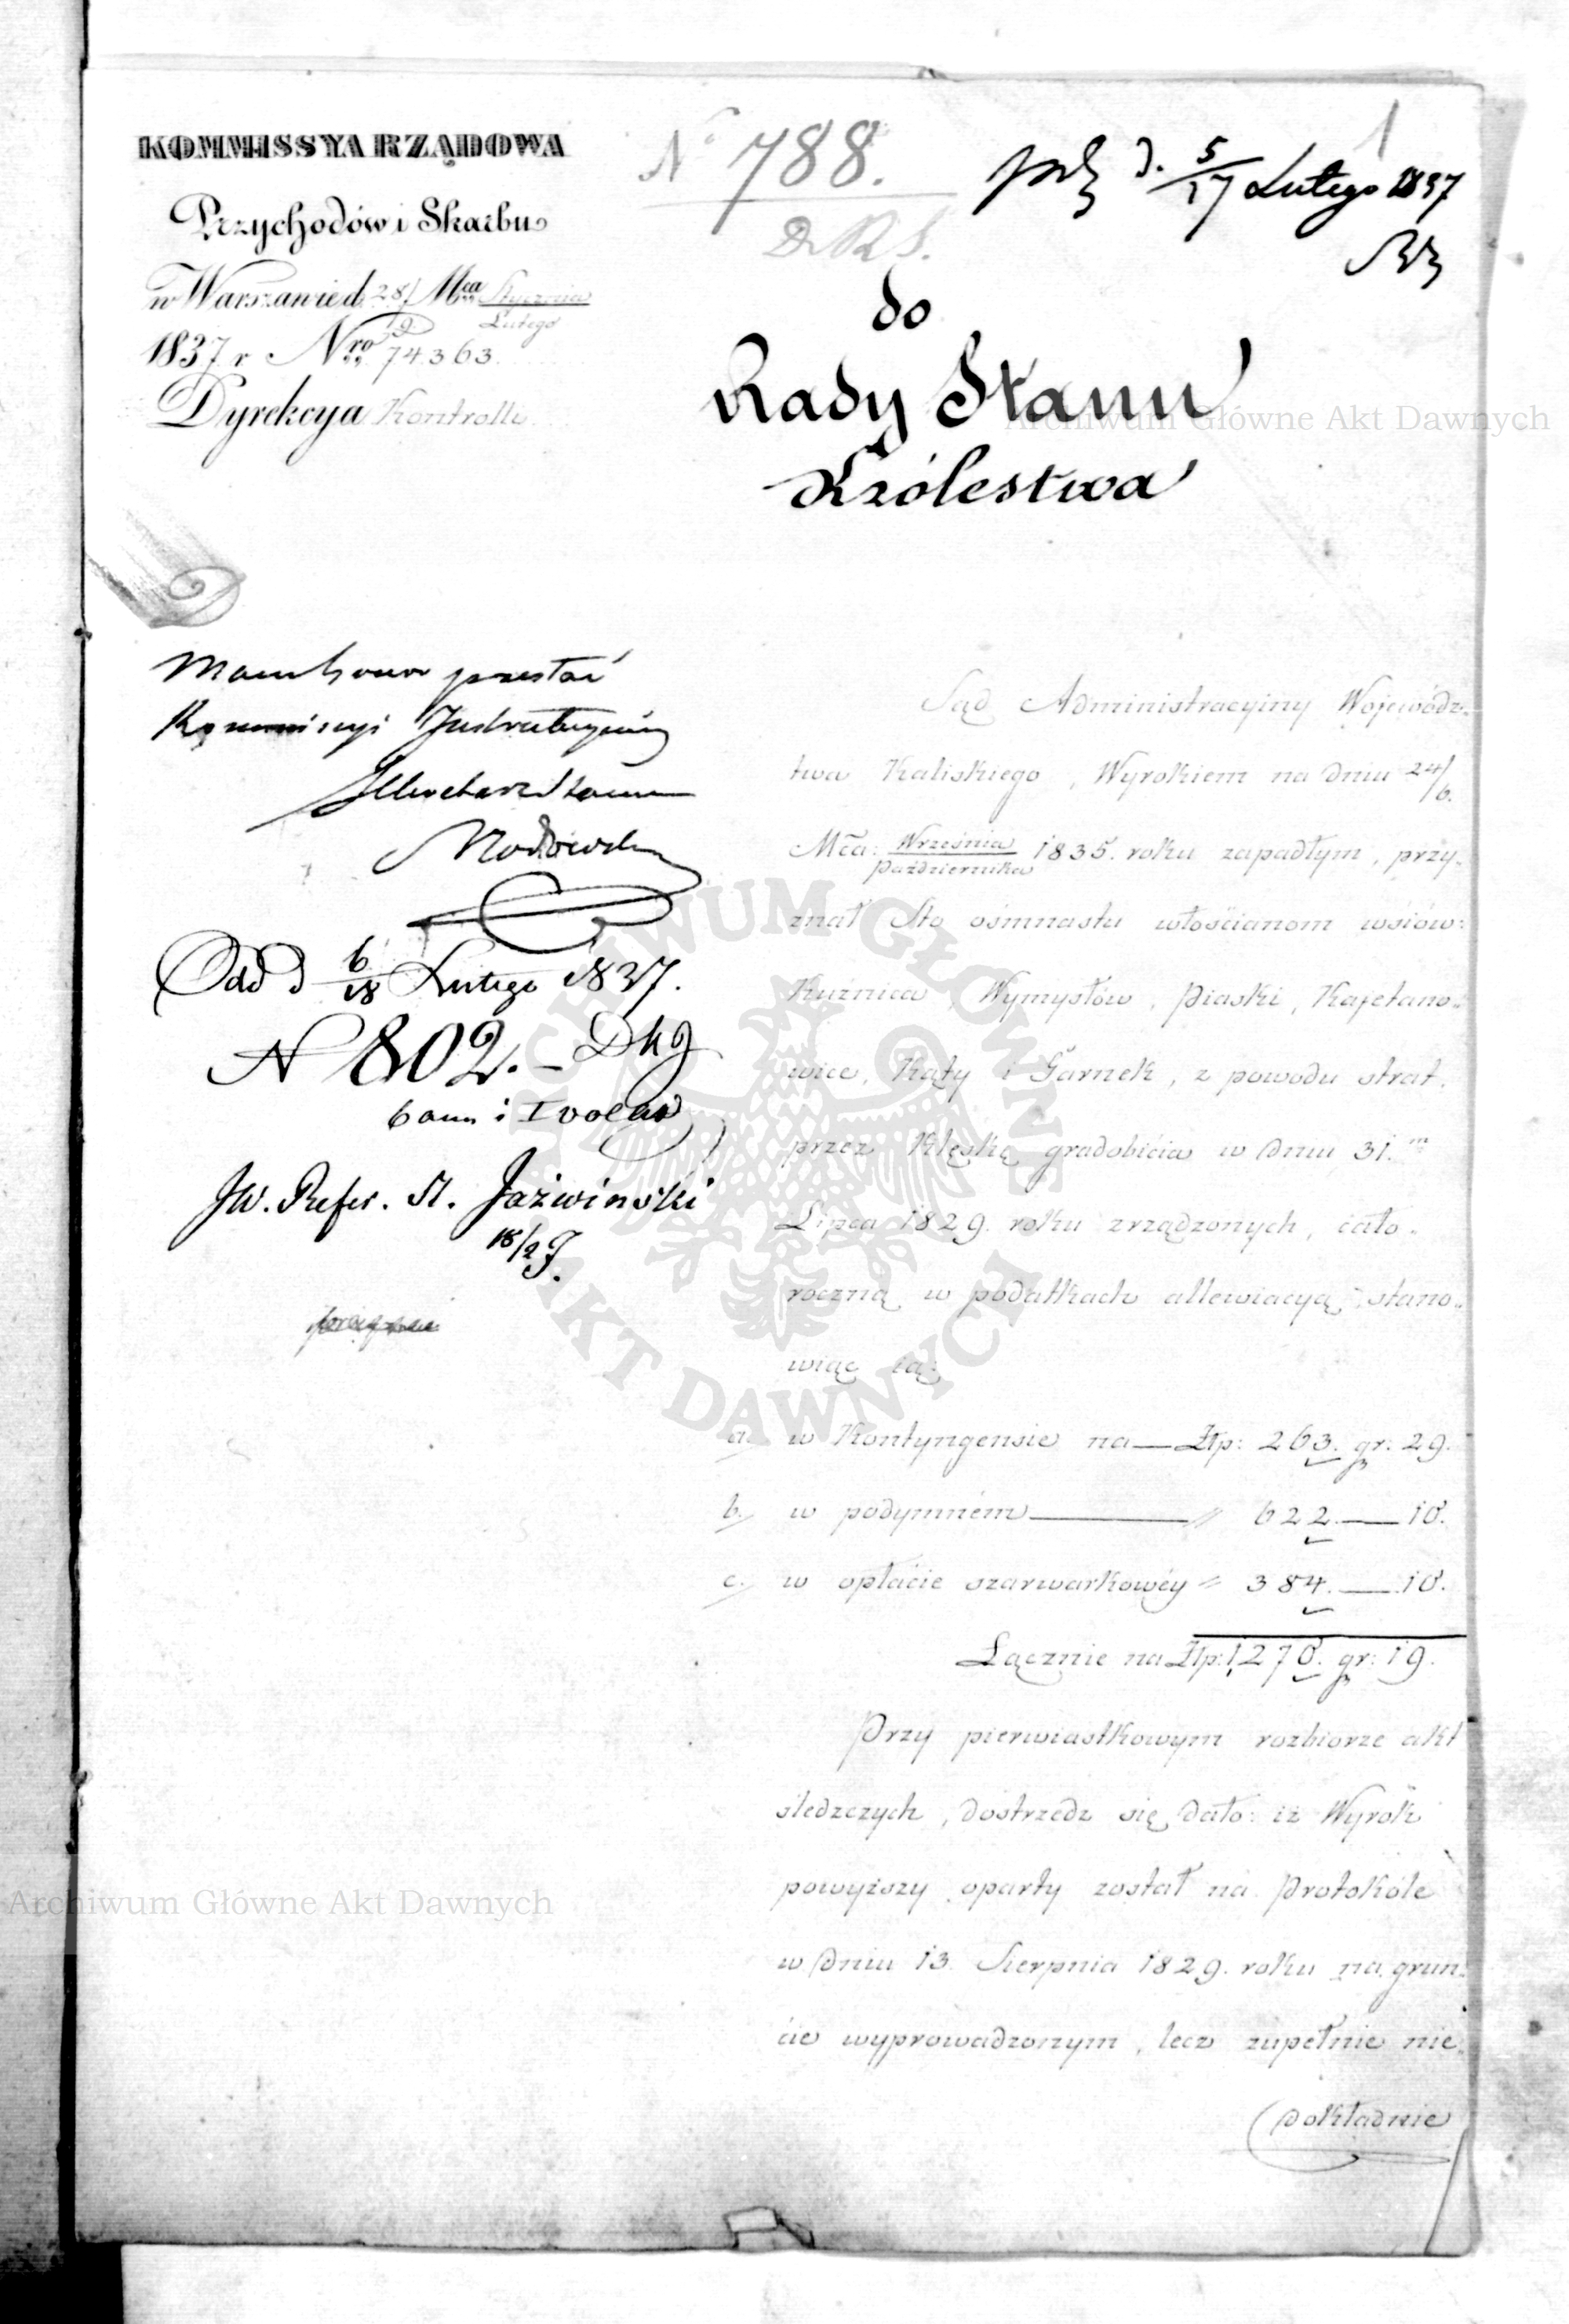 KOMMISSYA RZĄDOWA
Przychodów i Skarbu
w Warszawie d. 28/9 Mca Stycznia/Lutego
1837 r Nro 74363.
Dyrekcya Kontrolli
No 788.
D.R.S.
d. 5/17 Lutego 1837
1
do
Rady Stanu
Królestwa
przesłać
Kommissyi Instrukcyiney
Odd d 6/18 Lutego 1837.
N 802. –
JW. Refer. St. Jaźwinski
18/2 J.
Sąd Administracyiny Wojewódz-
twa Kaliskiego, Wyrokiem na dniu 24/6.
Mca: Września/Października 1835. roku zapadłym, przy-
znał Sto ośmnastu włościanom wsiów:
Kuźnica, Wymysłów, Piaski, Kajetano-
wice, Kąty i Garnek, z powodu strat,
przez klęskę gradobicia w dniu 31.m
Lipca 1829. roku zrządzonych, cało-
roczną w podatkach allewiacyą, stano-
wiąc ią:
a. w Kontyngensie na — Złp: 263. gr: 29.
b. w podymném — " 622. — 10.
c. w opłacie szarwarkowéy " 384. — 10.
Łącznie na Złp: 1,270. gr: 19.
Przy pierwiastkowym rozbiorze akt
sledzczych, dostrzedz się dało: iż Wyrok
powyższy oparty został na Protokóle
w dniu 13. Sierpnia 1829. roku na grun-
cie wyprowadzonym, lecz zupełnie nie-
dokładnie
Archiwum Główne Akt Dawnych
Archiwum Główne Akt Dawnych
ARCHIWUM GŁÓWNE AKT DAWNYCH